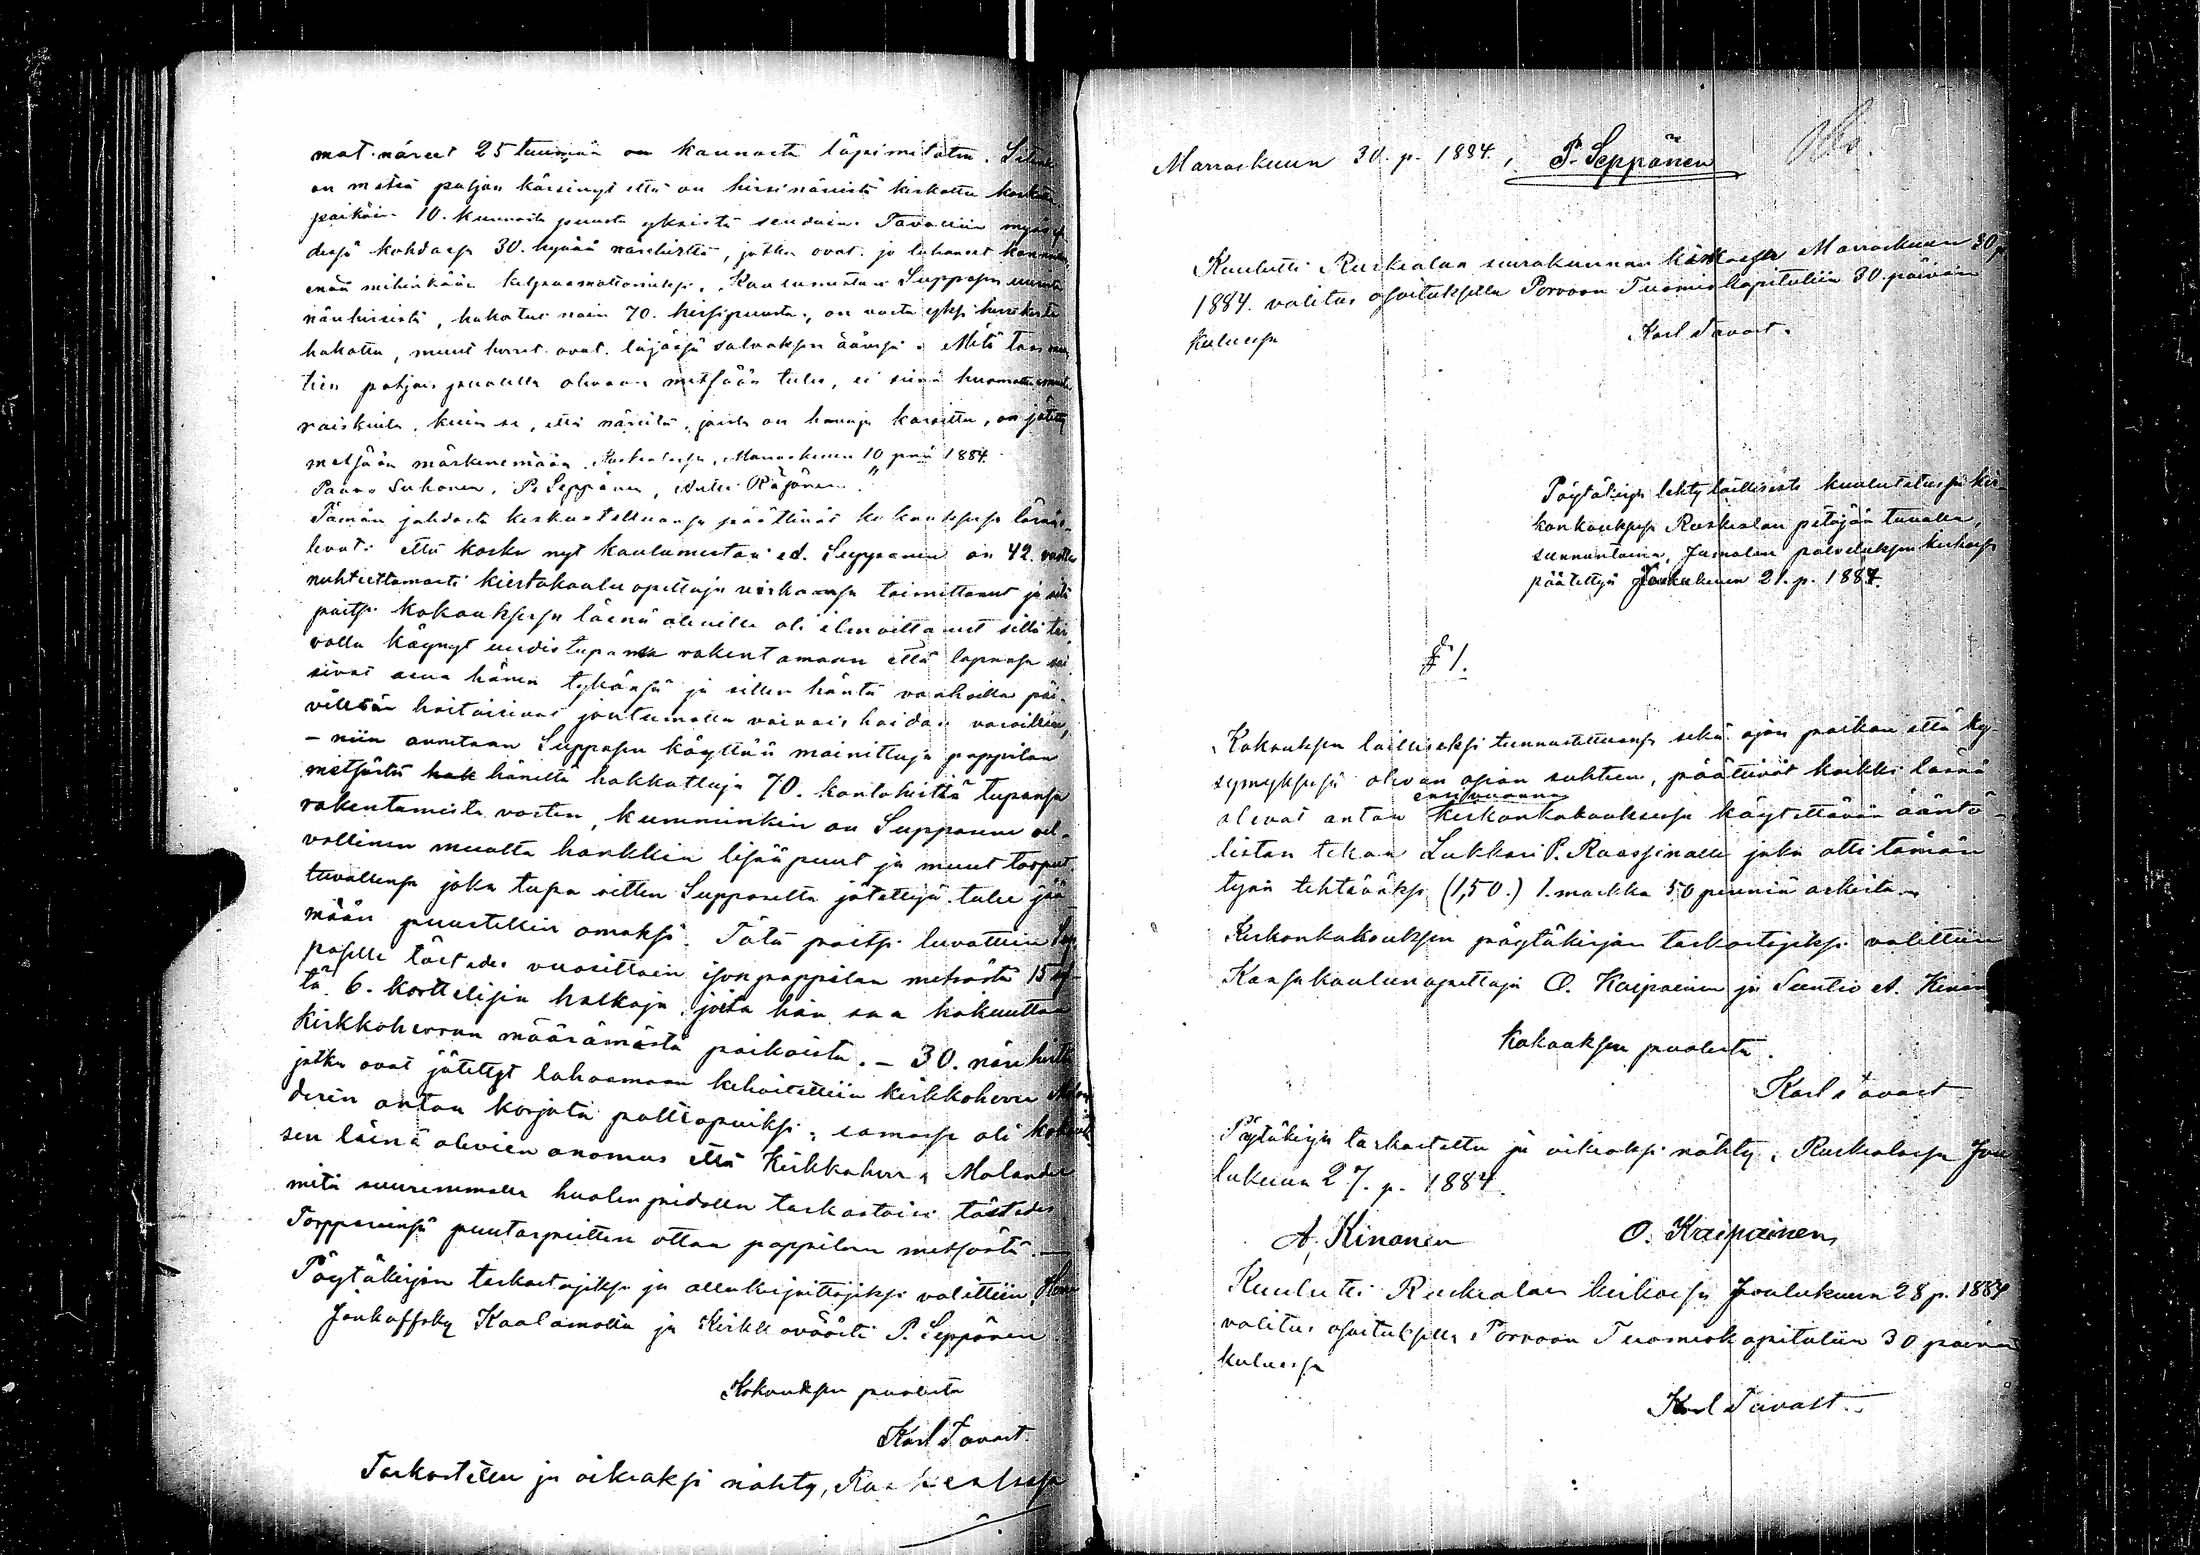 mat näreet 25 tuumaa on kannosta läpimitaten.
on metsä paljon kärsinyt että on hirsinäreistä kiskottu
paikoin 10. kunnosta puusta yksistä
kohdassa 30. hyvää närehirttä, jotka ovat jo lahonneet
enää mihinkään kelpaamattomiksi. Koulumestari Supposen
närehirsistä, hakatus noin 70. hirsipuusta, on vasta yksi
hakattu, muut hirret ovat läjässä salvoksen ääressä. Mitä taas
tien pohjois puolella olevaan metsään tulee, ei siinä
raiskuuta, kuin se, että näreitä, joista on havuja karsittu, on jätetty
metsään märkänemään. Ruskealassa, Marraskuun 10 pnä 1884.
Paavo Suhonen, P. Seppänen, Antti Räsönen."
Tämän johdosta keskusteltuansa päättivät kokouksessa läsnä
levat: että koska nyt koulumestari ed. Supponen on 42. vuotta
nuhteettomasti kiertokoulu opettaja virkaansa toimittanut ja sitä
paitsi kokouksessa läsnä oleville oli ilmoittanut sillä
valla käynyt uudistupansa rakentamaan että lapsensa
sivat asua hänen tykönsä ja sitten häntä vanhoilla päi-
villään hoitaisivat joutumatta vaivais hoidon varoihin,
— niin annetaan Supposen käyttää mainittuja pappilan
metsästä hak häneltä hakkattuja 70. kantohirttä tupansa
rakentamista varten, kumminkin on Supponen vel-
vollinen muolta hankkia lisää puut ja muut tarpeet
tuvallensa joka tupa sitten Supposelta jätettyä tulee jää-
mään puustellin omaksi. Tätä paitsi luvattiin Sup
poselle täst edes vuosittain ison pappilan metsästä 15 syl-
tä 6. korttelisia halkoja, joita hän saa hakuuttaa
kirkkoherran määrämästä paikoista. — 30. näre hirttä
jotka ovat jätetyt lahoamaan kehoitettiin kirkkoherra Molan
derin antaa korjata polttopuiksi; samassa oli kokouk
sen läsnä olevien anomus että Kirkkoherra Molander
mitä suuremmalla huolen pidolla tarkastaisi tästedes
Torpparinsa puutarpeitten ottaa pappilan metsästä. —
Pöytäkirjan tarkastajiksi ja allekirjoittajiksi valittiin
Joukoffsky Kaalamolta ja Kirkkoväästi P. Seppänen
Kokouksen puolesta
Karl Tavast.
Tarkastettu ja oikeaksi nähty, Ruskealassa
Marraskuun 30. p. 1884. P. Seppänen
Kuulutti Ruskealan seurakunnan kirkossa Marraskuun 30 p
1884. valitus osoituksella Porvoon Tuomiokapituliin 30. päivän
kuluessa
Karl Tavast.
Pöytäkirja tehty laillisesti kuulutetussa kir-
konkokouksessa Ruskealan pitäjän tuvalla,
sunnuntaina, Jumalan palveluksen kirkossa
päätettyä Joulukuun 21. p. 1884.
§ 1.
Kokouksen lailliseksi tunnustettuansa sekä ajan paikan että ky-
symyksessä olevan asian suhteen, päättivät kaikki läsnä
ensi vuonna
olevat antaa kirkonkokouksessa käytettävän ääntö-
listan tekoa Lukkari P. Raassinalle joka otti tämän
työn tehtääksi (1,50.) 1. markka 50 penniä arkista.
Kirkonkokouksen pöytäkirjan tarkastajiksi valittiin
Kansakoulunopettaja O. Kaipainen ja Suntio A. Kinan
Kokouksen puolesta.
Karl Tavast
Pöytäkirja tarkastettu ja oikeaksi nähty, Ruskealassa Jou
lukuun 27. p. 1884.
A. Kinanen O. Kaipainen
Kuulutti Ruskealan kirkossa Joulukuun 28 p. 1884
valitus osoituksella Porvoon Tuomiokapituliin 30 päivän
kuluessa
Karl Tavast.